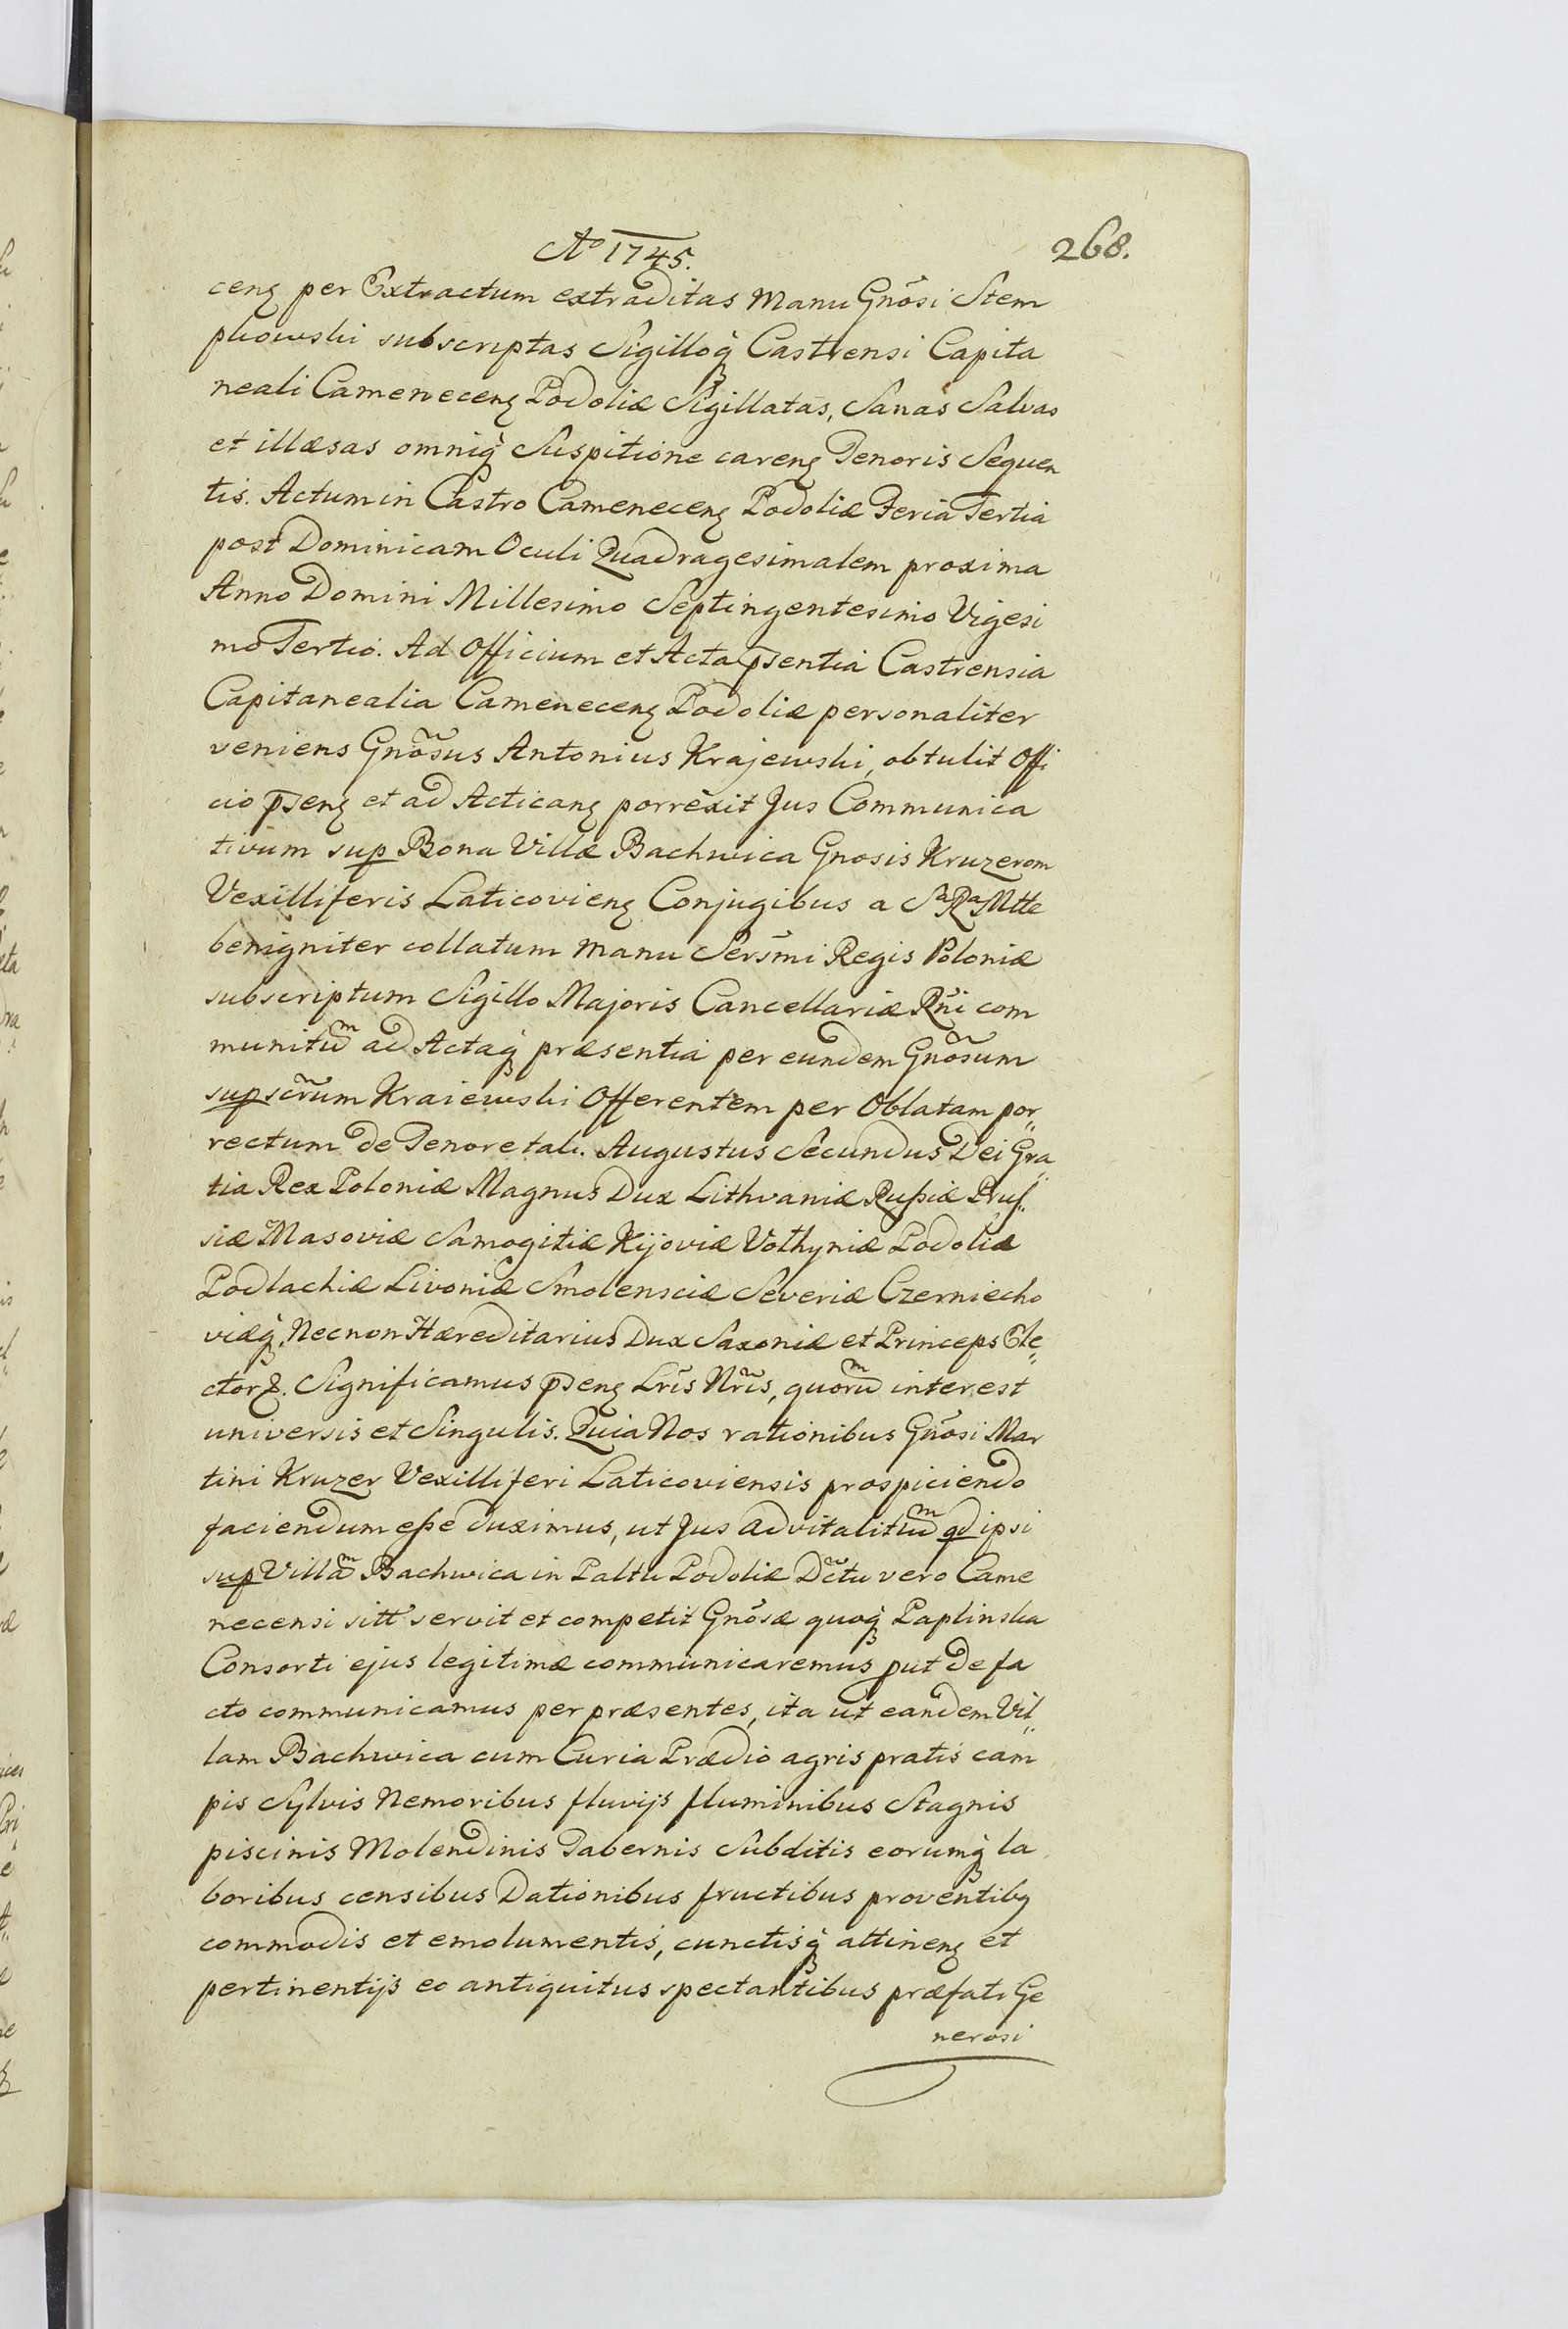 Aº 1745.
268.
ceng per Extractum extraditas Manu Gnõsi Stem
pkowski subscriptas Sigilloq́ Castrensi Capita
neali Cameneceng Podoliæ Sigillatas, Sanas Salvas
et illæsas omniq́ Suspitione careng Tenoris Sequen
tis. Actum in Castro Cameneceng Podoliæ Feria Tertia
post Dominicam Oculi Quadragesimalem proxima
Anno Domini Millesimo Septingentesimo Vigesi
mo Tertio. Ad Officium et Acta p̄sentia Castrensia
Capitanealia Cameneceng Podoliæ personaliter
veniens Gnõsus Antonius Krajewski, obtulit Offi
cio p̄seng et ad Acticang porrexit Jus Communica
tivum sup Bona Villæ Bachwica Gnosis Kruzerom
Vexilliferis Laticovieng Conjugibus a Sᵃ Rᵃ Mtte
benigniter collatum Manu Sersm̃i Regis Poloniæ
subscriptum Sigillo Majoris Cancellariæ Rñi com
munituᵐ ad Actaq́ præsentia per eundem Gnõsum
supscr̃um Kraiewski Offerentem per Oblatam por„
rectum de Tenore tali. Augustus Secundus Dei Gra„
tia Rex Poloniæ Magnus Dux Lithvaniæ Rußiæ Pruſ„
siæ Masoviæ Samogitiæ Kijoviæ Volhyniæ Podoliæ
Podlachiæ Livoniæ Smolensciæ Severiæ Czerniecho
viæq́. Necnon Hæreditarius Dux Saxoniæ et Princeps Ele„
ctor &. Significamus p̄seng Lrĩs Nrĩs, quoruᵐ interest
universis et Singulis. Quia Nos rationibus Gnõsi Mar
tini Kruzer Vexilliferi Laticoviensis prospiciendo
faciendum eße duximus, ut Jus advitalituᵐ qd ipsi
sup Villaᵐ Bachwica in Paltu Podoliæ Dc̃tu vero Came
necensi sitt servit et competit Gnõsæ quoq́ Paplinska
Consorti ejus legitimæ communicaremus put de fa
cto communicamus per præsentes, ita ut eandem Vil„
lam Bachwica cum Curia Prædio agris pratis cam
pis Sylvis Nemoribus fluvijs fluminibus Stagnis
piscinis Molendinis Tabernis Subditis eorumq́ la
boribus censibus Dationibus fructibus proventibg
commodis et emolumentis, cunctisq́ attineng et
pertinentijs eo antiquitus spectantibus præfati Ge
nerosi